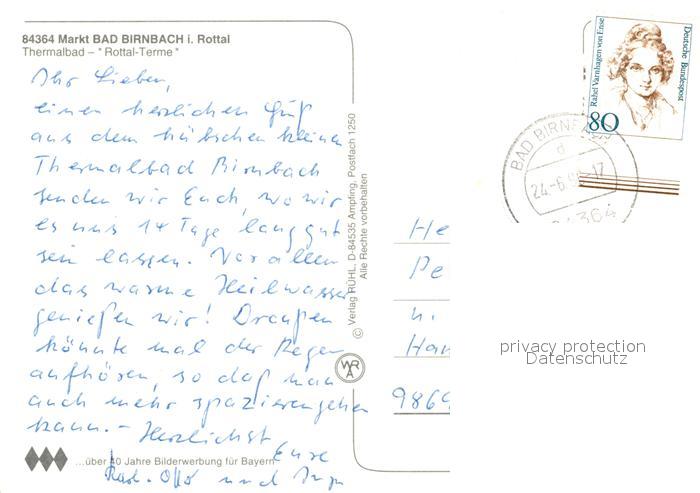 84364 Markt BAD BIRNBACH i. Rottal
Thermalbad – "Rottal-Terme"
Ihr Lieben,
einen herzlichen Gruß
aus dem hübschen kleinen
Thermalbad Birnbach
senden wir Euch, wo wir
es uns 14 Tage lang gut
sein lassen. Vor allem
das warme Heilwasser
genießen wir! Draußen
könnte mal der Regen
aufhören, so daß man
auch mehr spazierengehen
kann. – Herzlichst
Eure
Karl-Otto und
...über 40 Jahre Bilderwerbung für Bayern
© Verlag RÜHL, D-84535 Ampfing, Postfach 1250
Alle Rechte vorbehalten
WRA
Rahel Varnhagen von Ense
Deutsche Bundespost
80
BAD BIRNBACH
d
24.-6. -17
84364
He
Pe
u.
Han
9869
privacy protection
Datenschutz